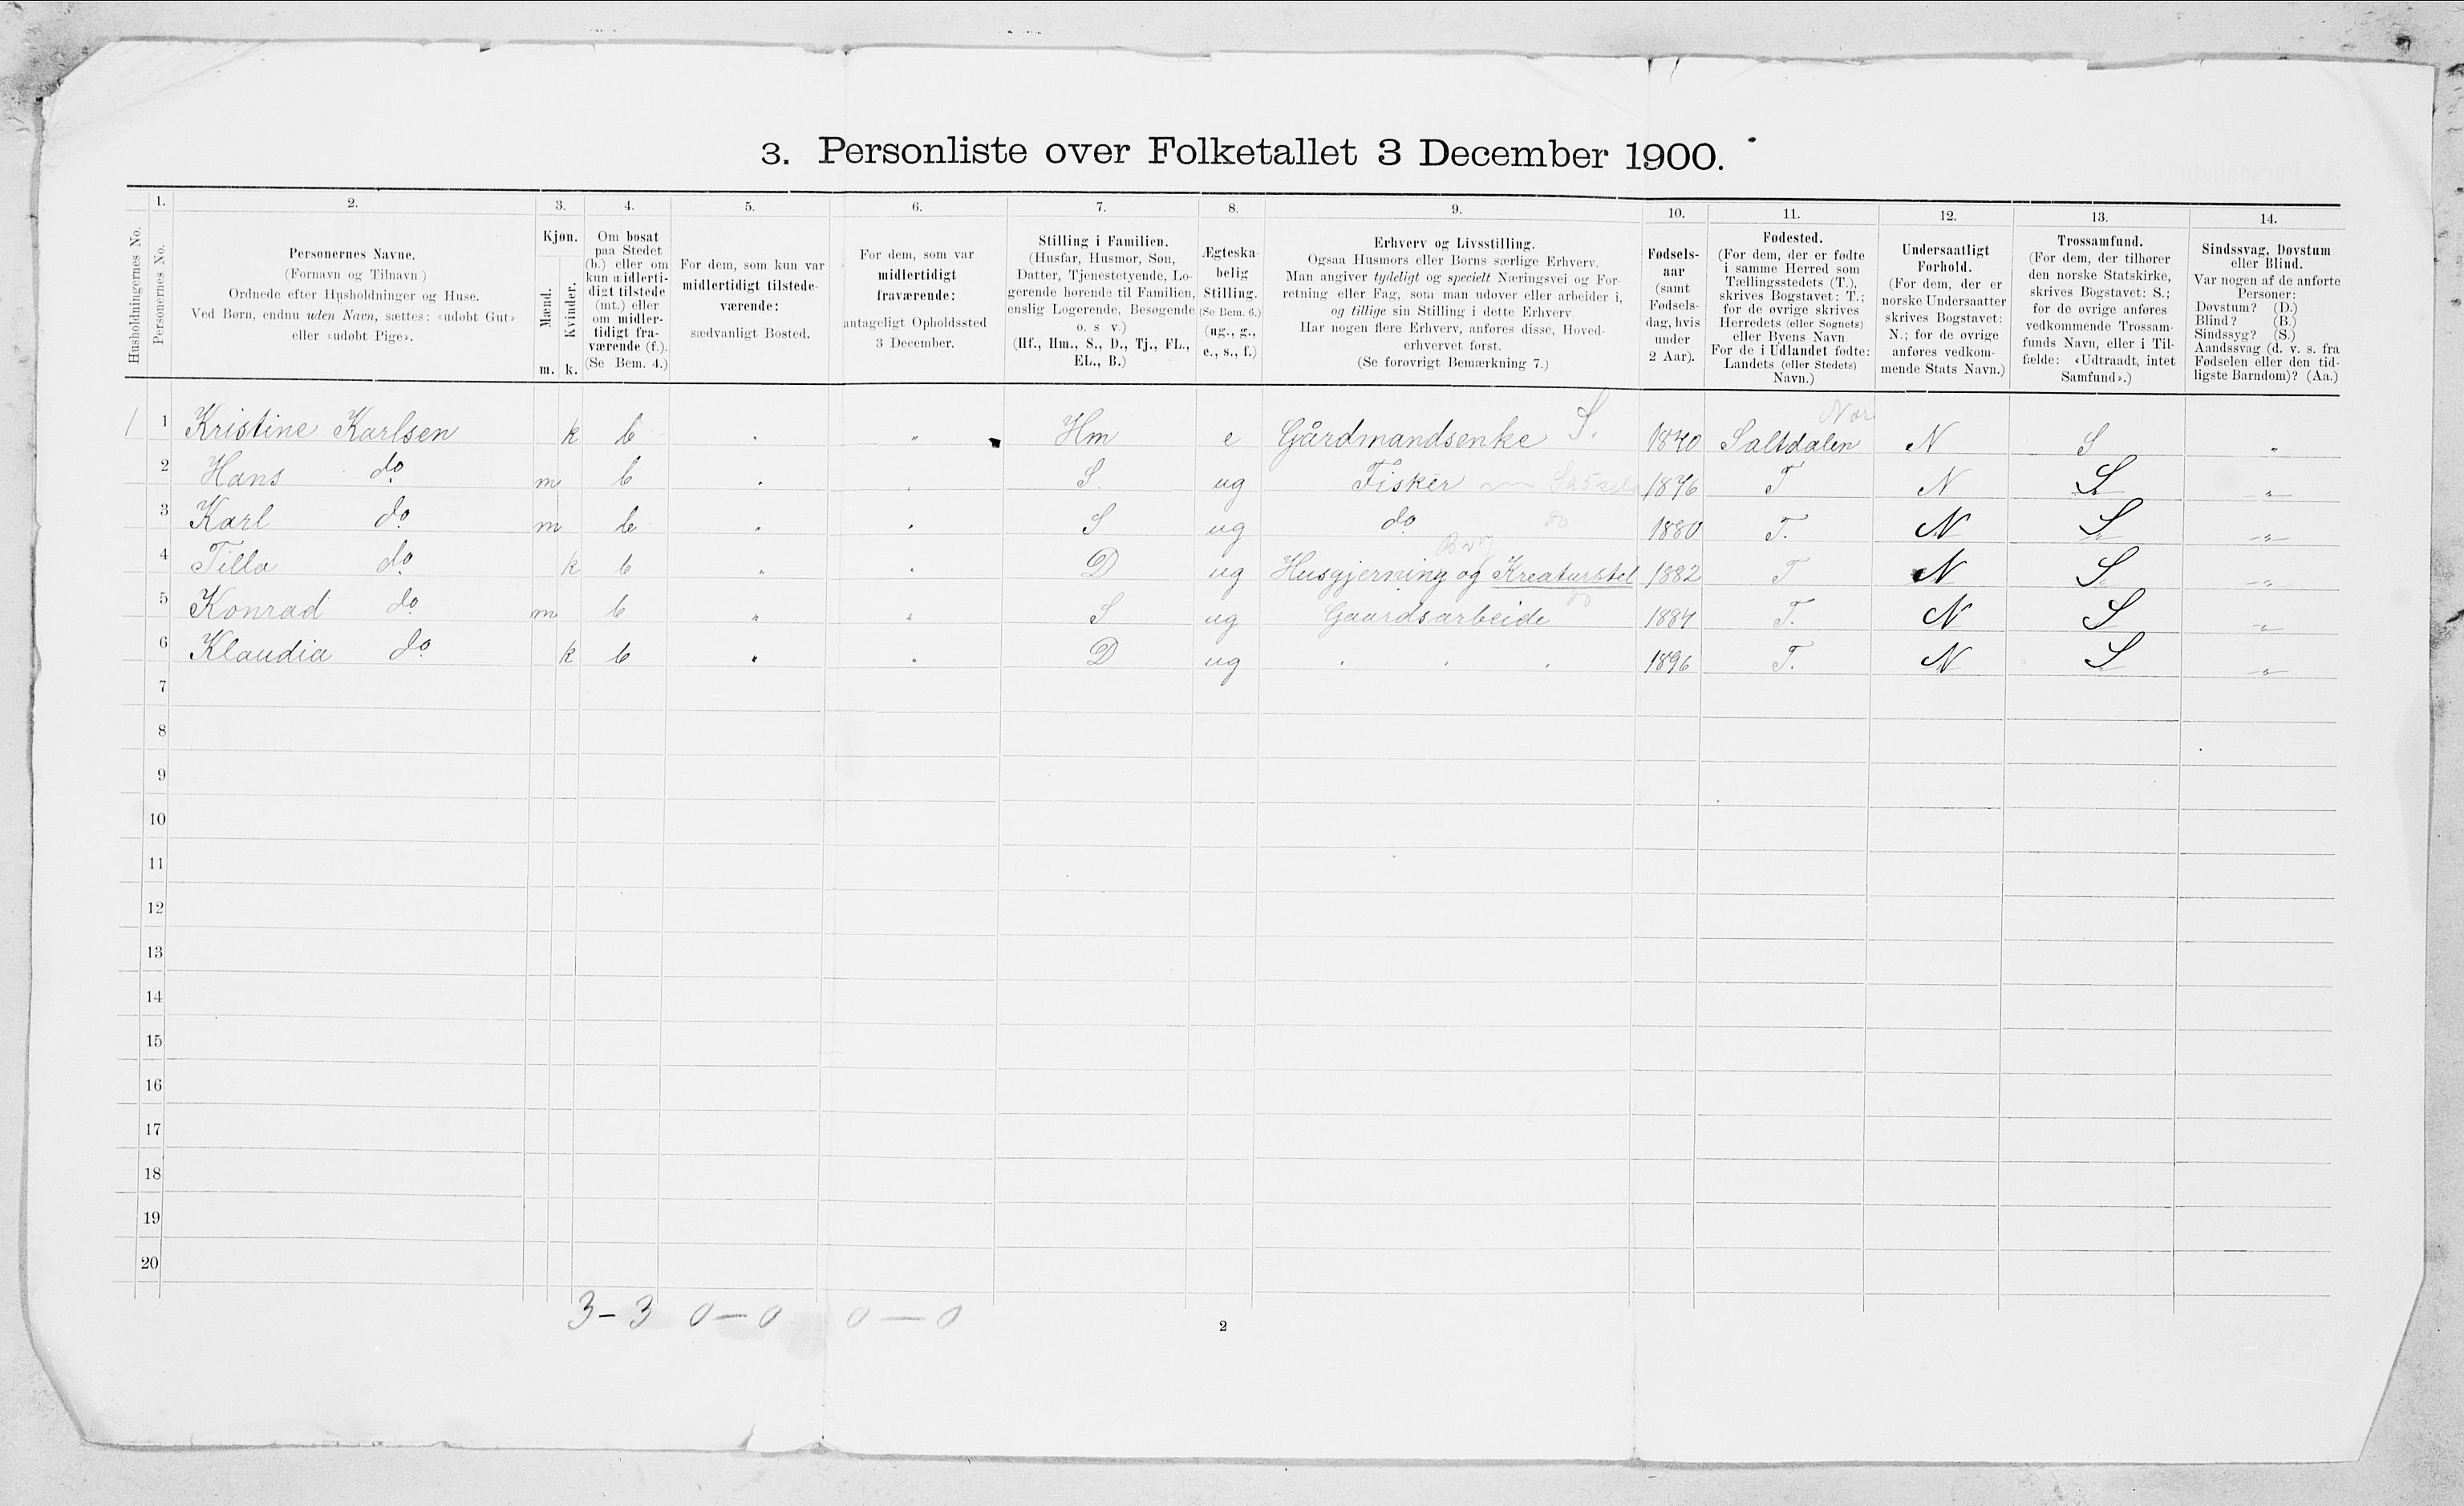 3. Personliste over Folketallet 3 December 1900.
Husholdningernes No.
1.
Personernes No.
2.
Personernes Navne.
(Fornavn og Tilnavn)
Ordnede efter Husholdninger og Huse.
Ved Børn, endnu uden Navn, sættes: «udøbt Gut»
eller «udøbt Pige».
3.
Kjøn.
Mænd.
Kvinder.
m. k.
4.
Om bosat
paa Stedet
(b.) eller om
kun midlerti-
digt tilstede
(mt.) eller
om midler-
tidigt fra-
værende (f.).
(Se Bem. 4.)
5.
For dem, som kun var
midlertidigt tilstede-
værende:
sædvanligt Bosted.
6.
For dem, som var
midlertidigt
fraværende:
antageligt Opholdssted
3 December.
7.
Stilling i Familien.
(Husfar, Husmor, Søn,
Datter, Tjenestetyende, Lo-
gerende hørende til Familien,
enslig Logerende, Besøgende
o. s v.)
(Hf., Hm., S., D., Tj., FL.,
EL., B.)
8.
Ægteska-
belig
Stilling.
(Se Bem. 6.)
(ug., g.,
e., s., f.)
9.
Erhverv og Livsstilling.
Ogsaa Husmors eller Børns særlige Erhverv.
Man angiver tydeligt og specielt Næringsvei og For-
retning eller Fag, som man udøver eller arbeider i,
og tillige sin Stilling i dette Erhverv.
Har nogen flere Erhverv, anføres disse, Hoved-
erhvervet først.
(Se forøvrigt Bemærkning 7.)
10.
Fødsels-
aar
(samt
Fødsels-
dag, hvis
under
2 Aar).
11.
Fødested.
(For dem, der er fødte
i samme Herred som
Tællingsstedets (T.),
skrives Bogstavet: T.;
for de øvrige skrives
Herredets (eller Sognets)
eller Byens Navn.
For de i Udlandet fødte:
Landets (eller Stedets)
Navn.)
12.
Undersaatligt
Forhold.
(For dem, der er
norske Undersaatter
skrives Bogstavet:
N.; for de øvrige
anføres vedkom-
mende Stats Navn.)
13.
Trossamfund.
(For dem, der tilhører
den norske Statskirke,
skrives Bogstavet: S.;
for de øvrige anføres
vedkommende Trossam-
funds Navn, eller i Til-
fælde: «Udtraadt, intet
Samfund».)
14.
Sindssvag, Døvstum
eller Blind.
Var nogen af de anførte
Personer:
Døvstum? (D.)
Blind? (B.)
Sindssyg? (S.)
Aandssvag (d. v. s. fra
Fødselen eller den tid-
ligste Barndom)? (Aa.)
1 1 Kristine Karlsen k b " " Hm e Gårdmandsenke S. 1840 Saltdalen Nor N S "
2 Hans do m b " " S. ug Fisker 1876 T N S "
3 Karl do m b " " S ug do do 1880 T. N S "
4 Tilla do k b " " D ug Husgjerning og Kreaturstel 1882 T N S "
5 Konrad do m b " " S ug Gaardsarbeide do 1884 T. N S "
6 Klaudia do k b " " D ug " " " 1896 T. N S "
7
8
9
10
11
12
13
14
15
16
17
18
19
20
3-3 0-0 0-0
2